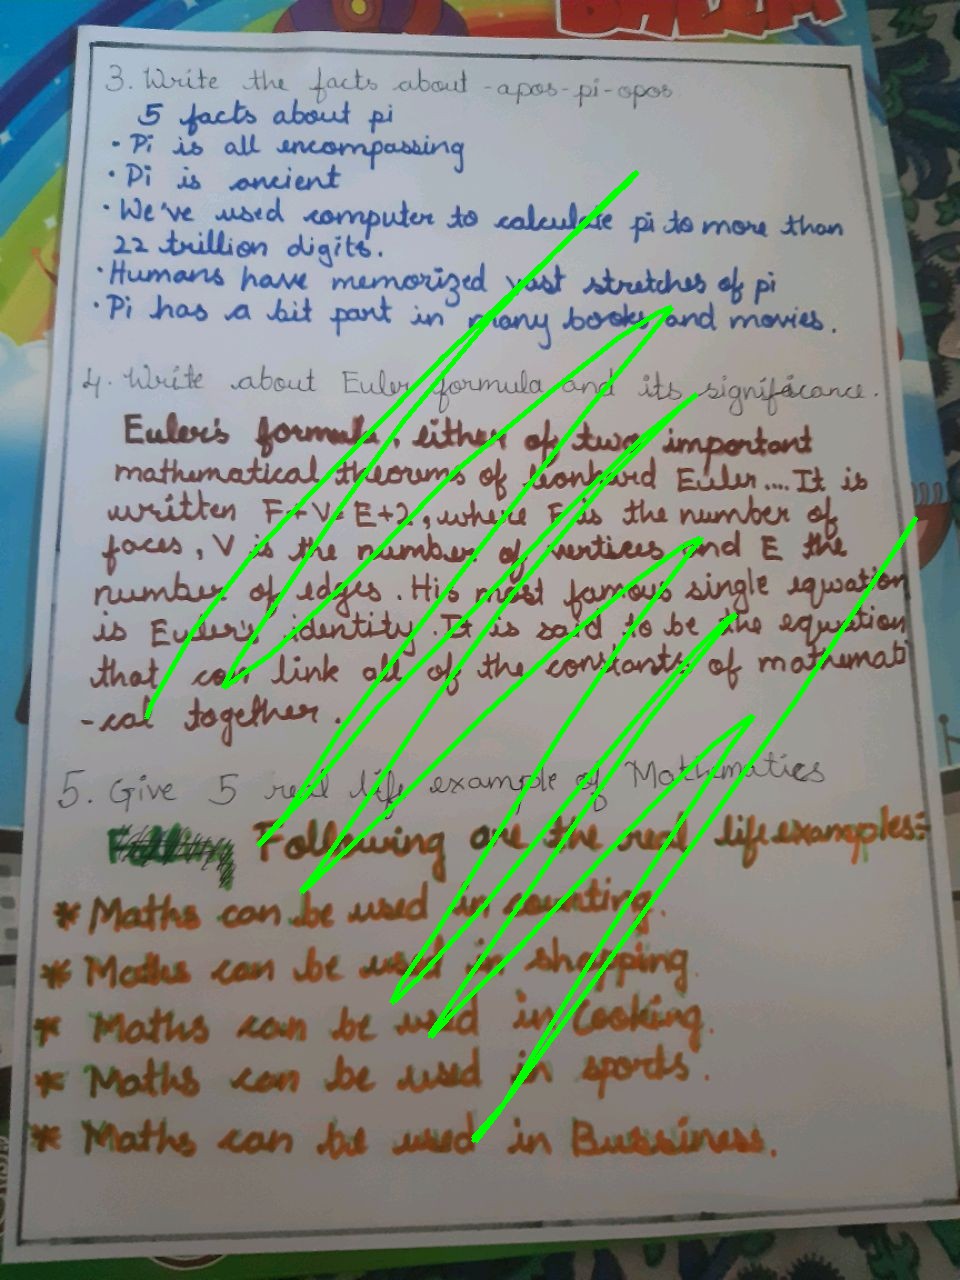 3. Write the facts about -apos-pi-opos
5 facts about pi
• Pi is all encompassing
• Pi is ancient
• We've used computer to calculate pi to more than
22 trillion digits.
• Humans have memorized vast stretches of pi
• Pi has a bit part in many books and movies.
4. Write about Euler formula and its significance.
Euler's formula, either of two important
mathematical theorums of leonhard Euler.... It is
written F+V=E+2, where F is the number of
faces, V is the number of vertices and E the
number of edges. His most famous single equation
is Euler's identity. It is said to be the equation
that can link all of the constants of mathemati
-cal together.
5. Give 5 real life example of Mathematics
Following are the real life examples:
* Maths can be used in counting.
* Maths can be used in shopping.
* Maths can be used in Cooking.
* Maths can be used in sports.
* Maths can be used in Bussiness.